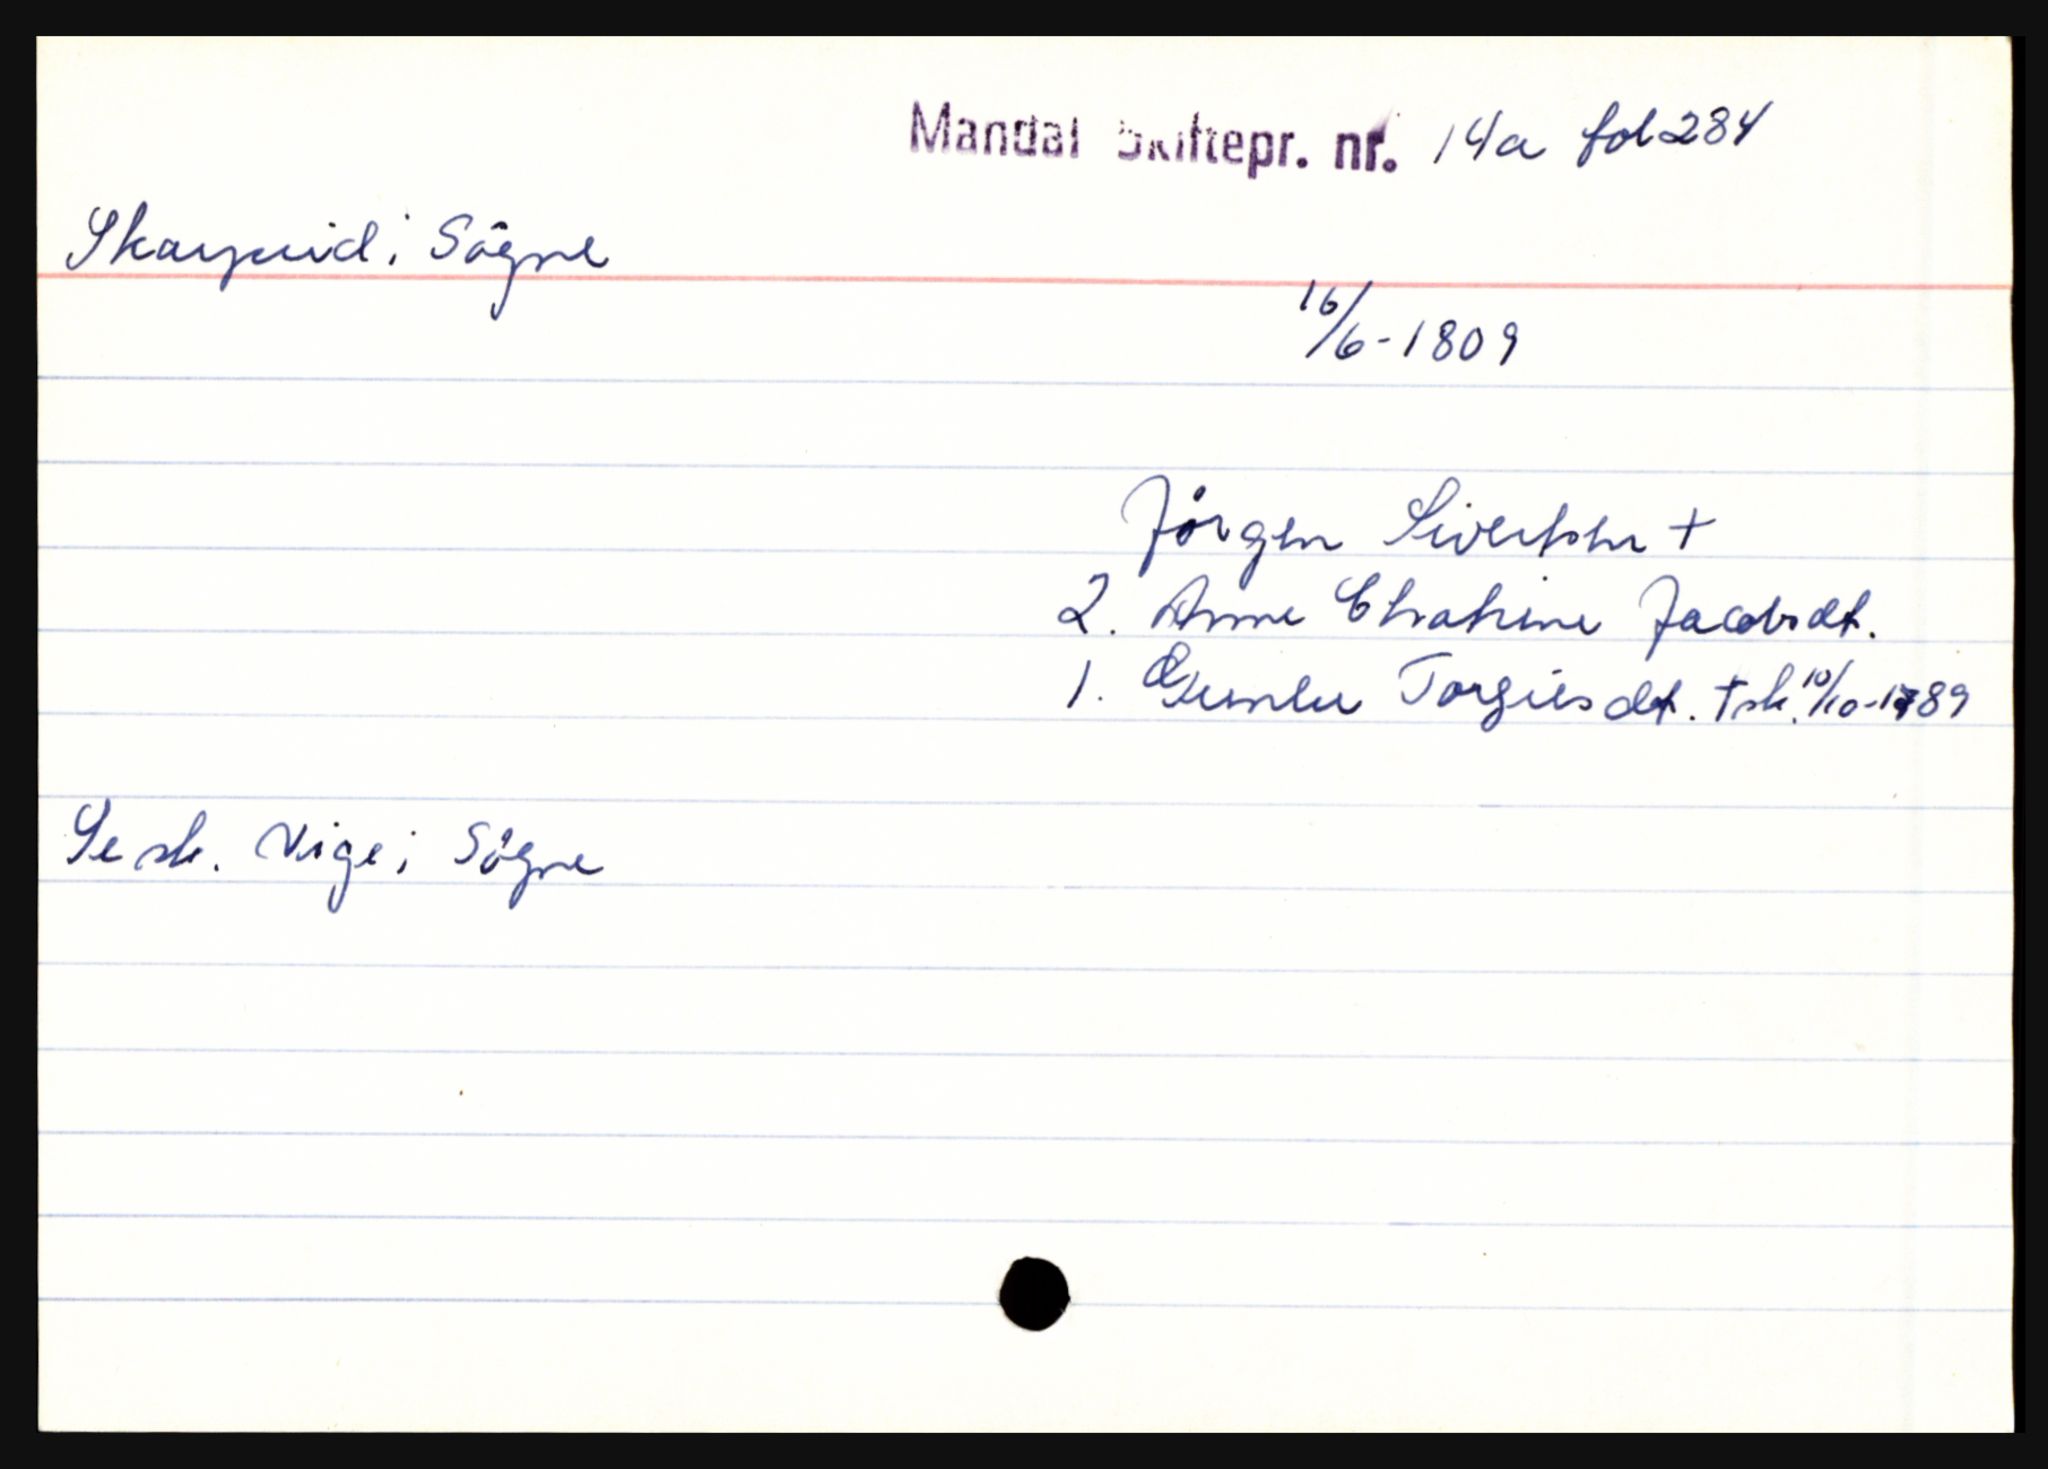 Mandal Skiftepr. nr. 14a fol 284
Skarpeid i Søgne
16/6-1809
Jørgen Sivertsen +
2. Anne Chatrine Jacobsdt.
1. Gunlu Torgiesdt. + sk. 10/10-1789
Se sk. Vige i Søgne